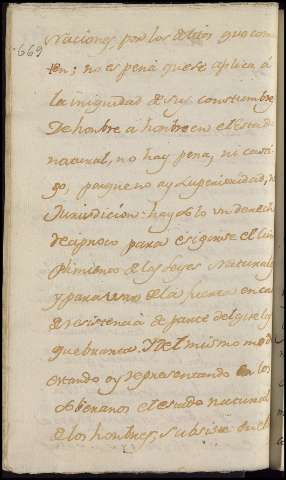 669
Naciones por los delitos que come
ten; no es pena que se aplica á
la iniquidad de sus constumbres,
De hombre a hombre en el Estado
natural, no hay pena, ni casti
go, porque no ay superioridad, ni
Jurisdicion: hay solo un derecho
reciproco para exigirse el cum
plimiento de las Leyes Naturales
y para usar de la fuerza en caso
de resistencia de parte del que las
quebranta. Y del mismo modo
estando oy representando en los
soberanos el estado natural
de los hombres, subsiste en ell